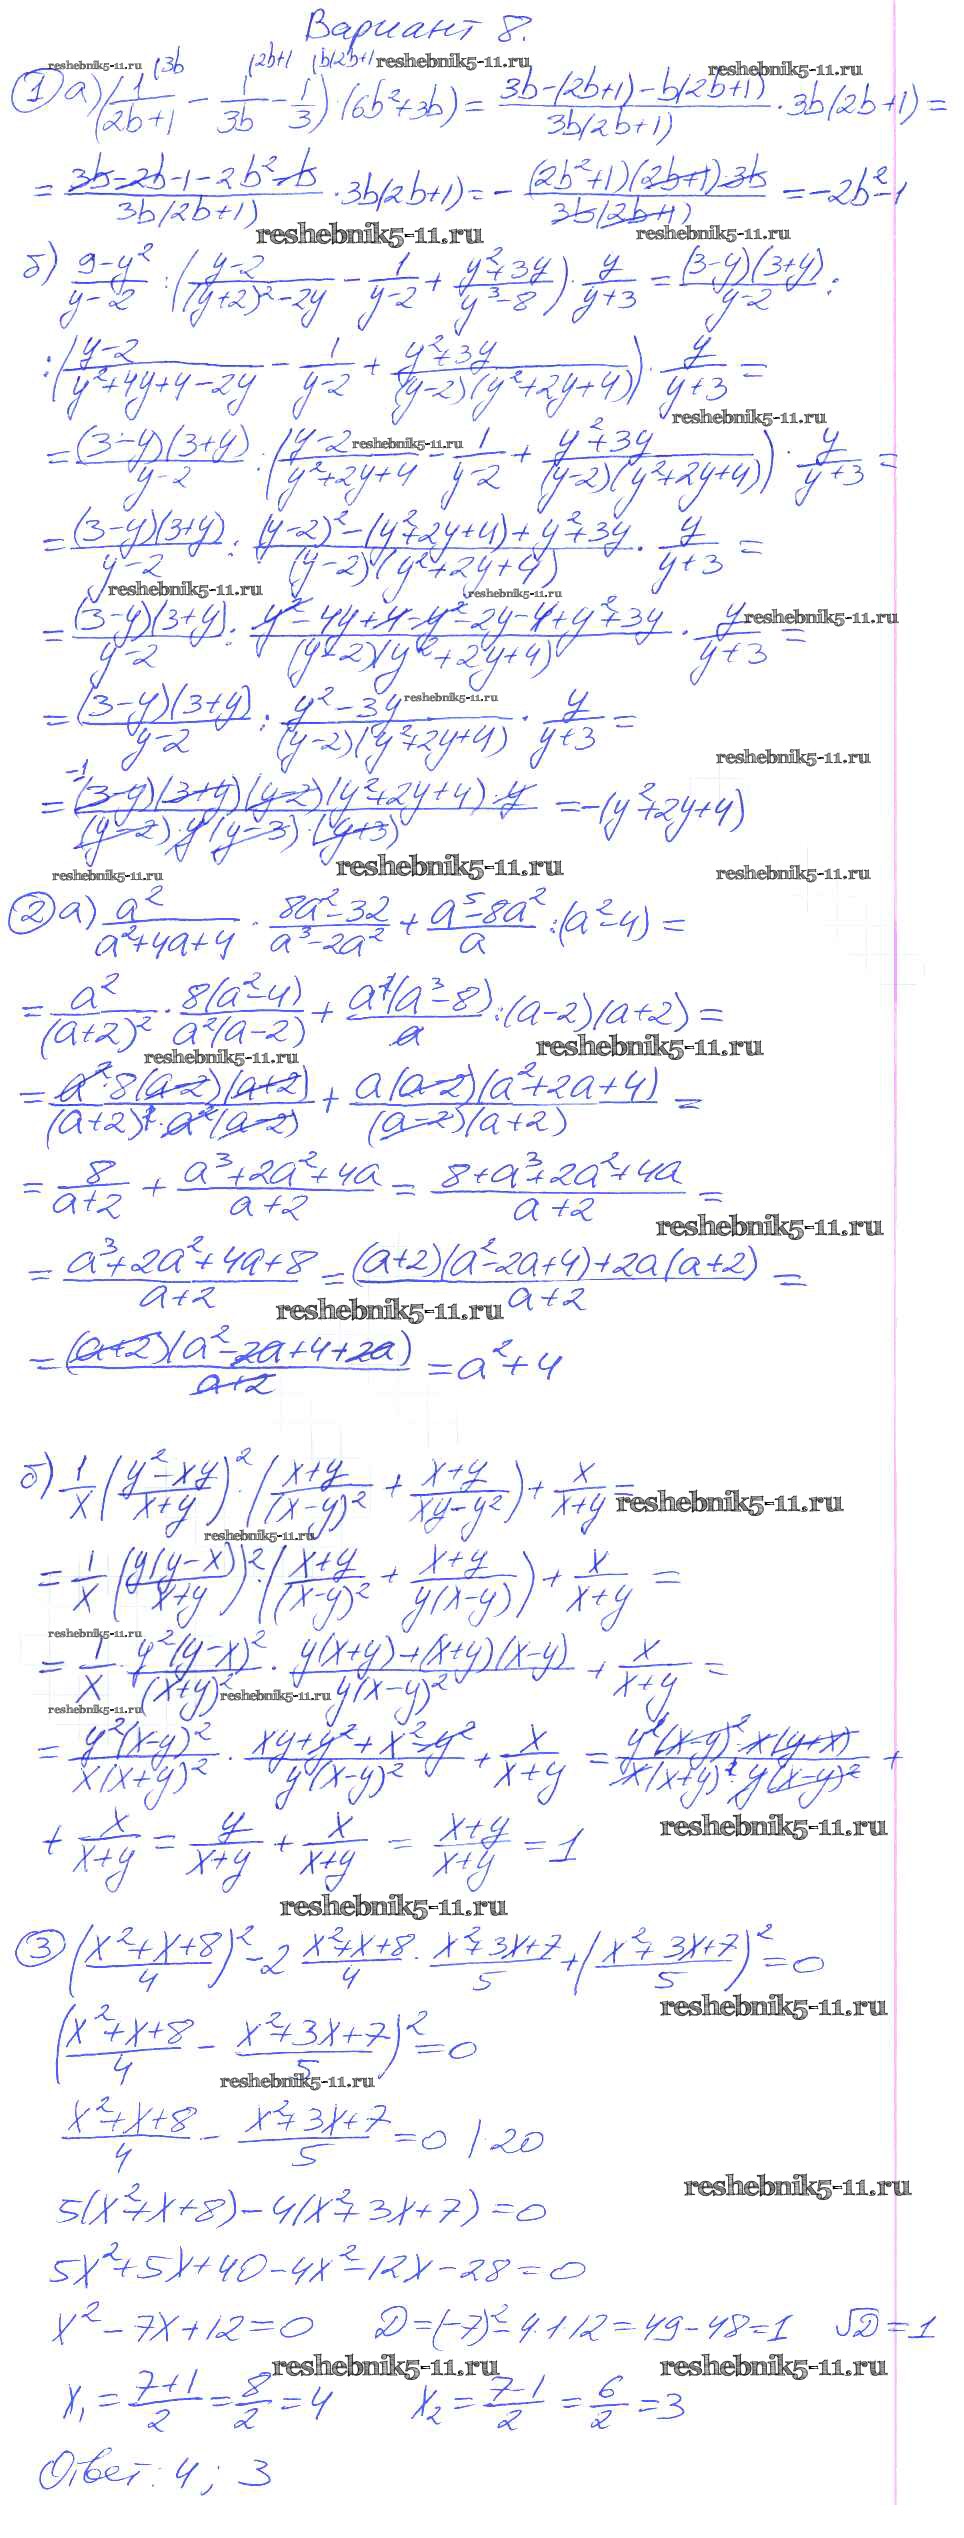 Вариант 8.
reshebnik5-11.ru |3b |2b+1 |b(2b+1) reshebnik5-11.ru reshebnik5-11.ru
① а) (1/(2b+1) - 1/3b - 1/3)·(6b²+3b) = (3b-(2b+1)-b(2b+1))/(3b(2b+1)) · 3b(2b+1) =
= (3b-2b-1-2b²-b)/(3b(2b+1)) · 3b(2b+1) = - ((2b²+1)(2b+1)·3b)/(3b(2b+1)) = -2b²-1
reshebnik5-11.ru reshebnik5-11.ru
б) (9-y²)/(y-2) : ((y-2)/((y+2)²-2y) - 1/(y-2) + (y²+3y)/(y³-8)) · y/(y+3) = ((3-y)(3+y))/(y-2) :
: ((y-2)/(y²+4y+4-2y) - 1/(y-2) + (y²+3y)/((y-2)(y²+2y+4))) · y/(y+3) =
reshebnik5-11.ru
= ((3-y)(3+y))/(y-2) : ((y-2)/(y²+2y+4) - 1/(y-2) + (y²+3y)/((y-2)(y²+2y+4))) · y/(y+3) =
reshebnik5-11.ru
= ((3-y)(3+y))/(y-2) : ((y-2)²-(y²+2y+4)+y²+3y)/((y-2)(y²+2y+4)) · y/(y+3) =
reshebnik5-11.ru reshebnik5-11.ru
= ((3-y)(3+y))/(y-2) : (y²-4y+4-y²-2y-4+y²+3y)/((y-2)(y²+2y+4)) · y/(y+3) =
reshebnik5-11.ru
= ((3-y)(3+y))/(y-2) : (y²-3y)/((y-2)(y²+2y+4)) · y/(y+3) =
reshebnik5-11.ru reshebnik5-11.ru
-1
= ((3-y)(3+y)(y-2)(y²+2y+4)·y)/((y-2)·y(y-3)·(y+3)) = -(y²+2y+4)
reshebnik5-11.ru reshebnik5-11.ru reshebnik5-11.ru
② а) a²/(a²+4a+4) · (8a²-32)/(a³-2a²) + (a⁵-8a²)/a : (a²-4) =
= a²/(a+2)² · (8(a²-4))/(a²(a-2)) + (a²(a³-8))/a : (a-2)(a+2) =
reshebnik5-11.ru reshebnik5-11.ru
= (a²·8(a-2)(a+2))/((a+2)²·a²(a-2)) + (a(a-2)(a²+2a+4))/((a-2)(a+2)) =
= 8/(a+2) + (a³+2a²+4a)/(a+2) = (8+a³+2a²+4a)/(a+2) =
reshebnik5-11.ru
= (a³+2a²+4a+8)/(a+2) = ((a+2)(a²-2a+4)+2a(a+2))/(a+2) =
reshebnik5-11.ru
= ((a+2)(a²-2a+4+2a))/(a+2) = a²+4
б) 1/x ((y²-xy)/(x+y))² · ((x+y)/(x-y)² + (x+y)/(xy-y²)) + x/(x+y) =
reshebnik5-11.ru reshebnik5-11.ru
= 1/x ((y(y-x))/(x+y))² · ((x+y)/(x-y)² + (x+y)/(y(x-y))) + x/(x+y) =
reshebnik5-11.ru
= 1/x · (y²(y-x)²)/(x+y)² · (y(x+y)+(x+y)(x-y))/(y(x-y)²) + x/(x+y) =
reshebnik5-11.ru reshebnik5-11.ru
= (y²(x-y)²)/(x(x+y)²) · (xy+y²+x²-y²)/(y(x-y)²) + x/(x+y) = (y²(x-y)²·x(y+x))/(x(x+y)²·y(x-y)²) +
+ x/(x+y) = y/(x+y) + x/(x+y) = (x+y)/(x+y) = 1
reshebnik5-11.ru
reshebnik5-11.ru
③ ((x²+x+8)/4)² - 2 (x²+x+8)/4 · (x²+3x+7)/5 + ((x²+3x+7)/5)² = 0
reshebnik5-11.ru
((x²+x+8)/4 - (x²+3x+7)/5)² = 0
reshebnik5-11.ru
(x²+x+8)/4 - (x²+3x+7)/5 = 0 |·20
reshebnik5-11.ru
5(x²+x+8)-4(x²+3x+7)=0
5x²+5x+40-4x²-12x-28=0
x²-7x+12=0 D=(-7)²-4·1·12=49-48=1 √D=1
reshebnik5-11.ru reshebnik5-11.ru
x₁ = (7+1)/2 = 8/2 = 4 x₂ = (7-1)/2 = 6/2 = 3
Ответ: 4; 3